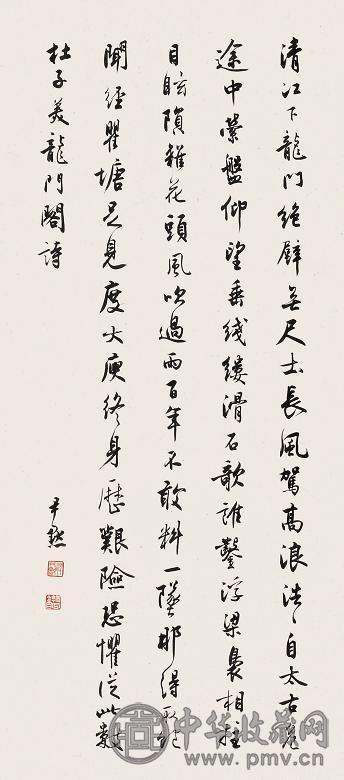 清江下龍門絕壁無尺土長風駕高浪浩〻自太古危
途中縈盤仰望垂綫縷滑石欹誰鑿浮梁裊相拄
目眩隕雜花頭風吹過雨百年不敢料一墜那得取飽
聞經瞿塘足見度大庾終身歷艱險恐懼從此數
杜子美龍門閣詩
尹默
中华收藏网
www.pmv.cn